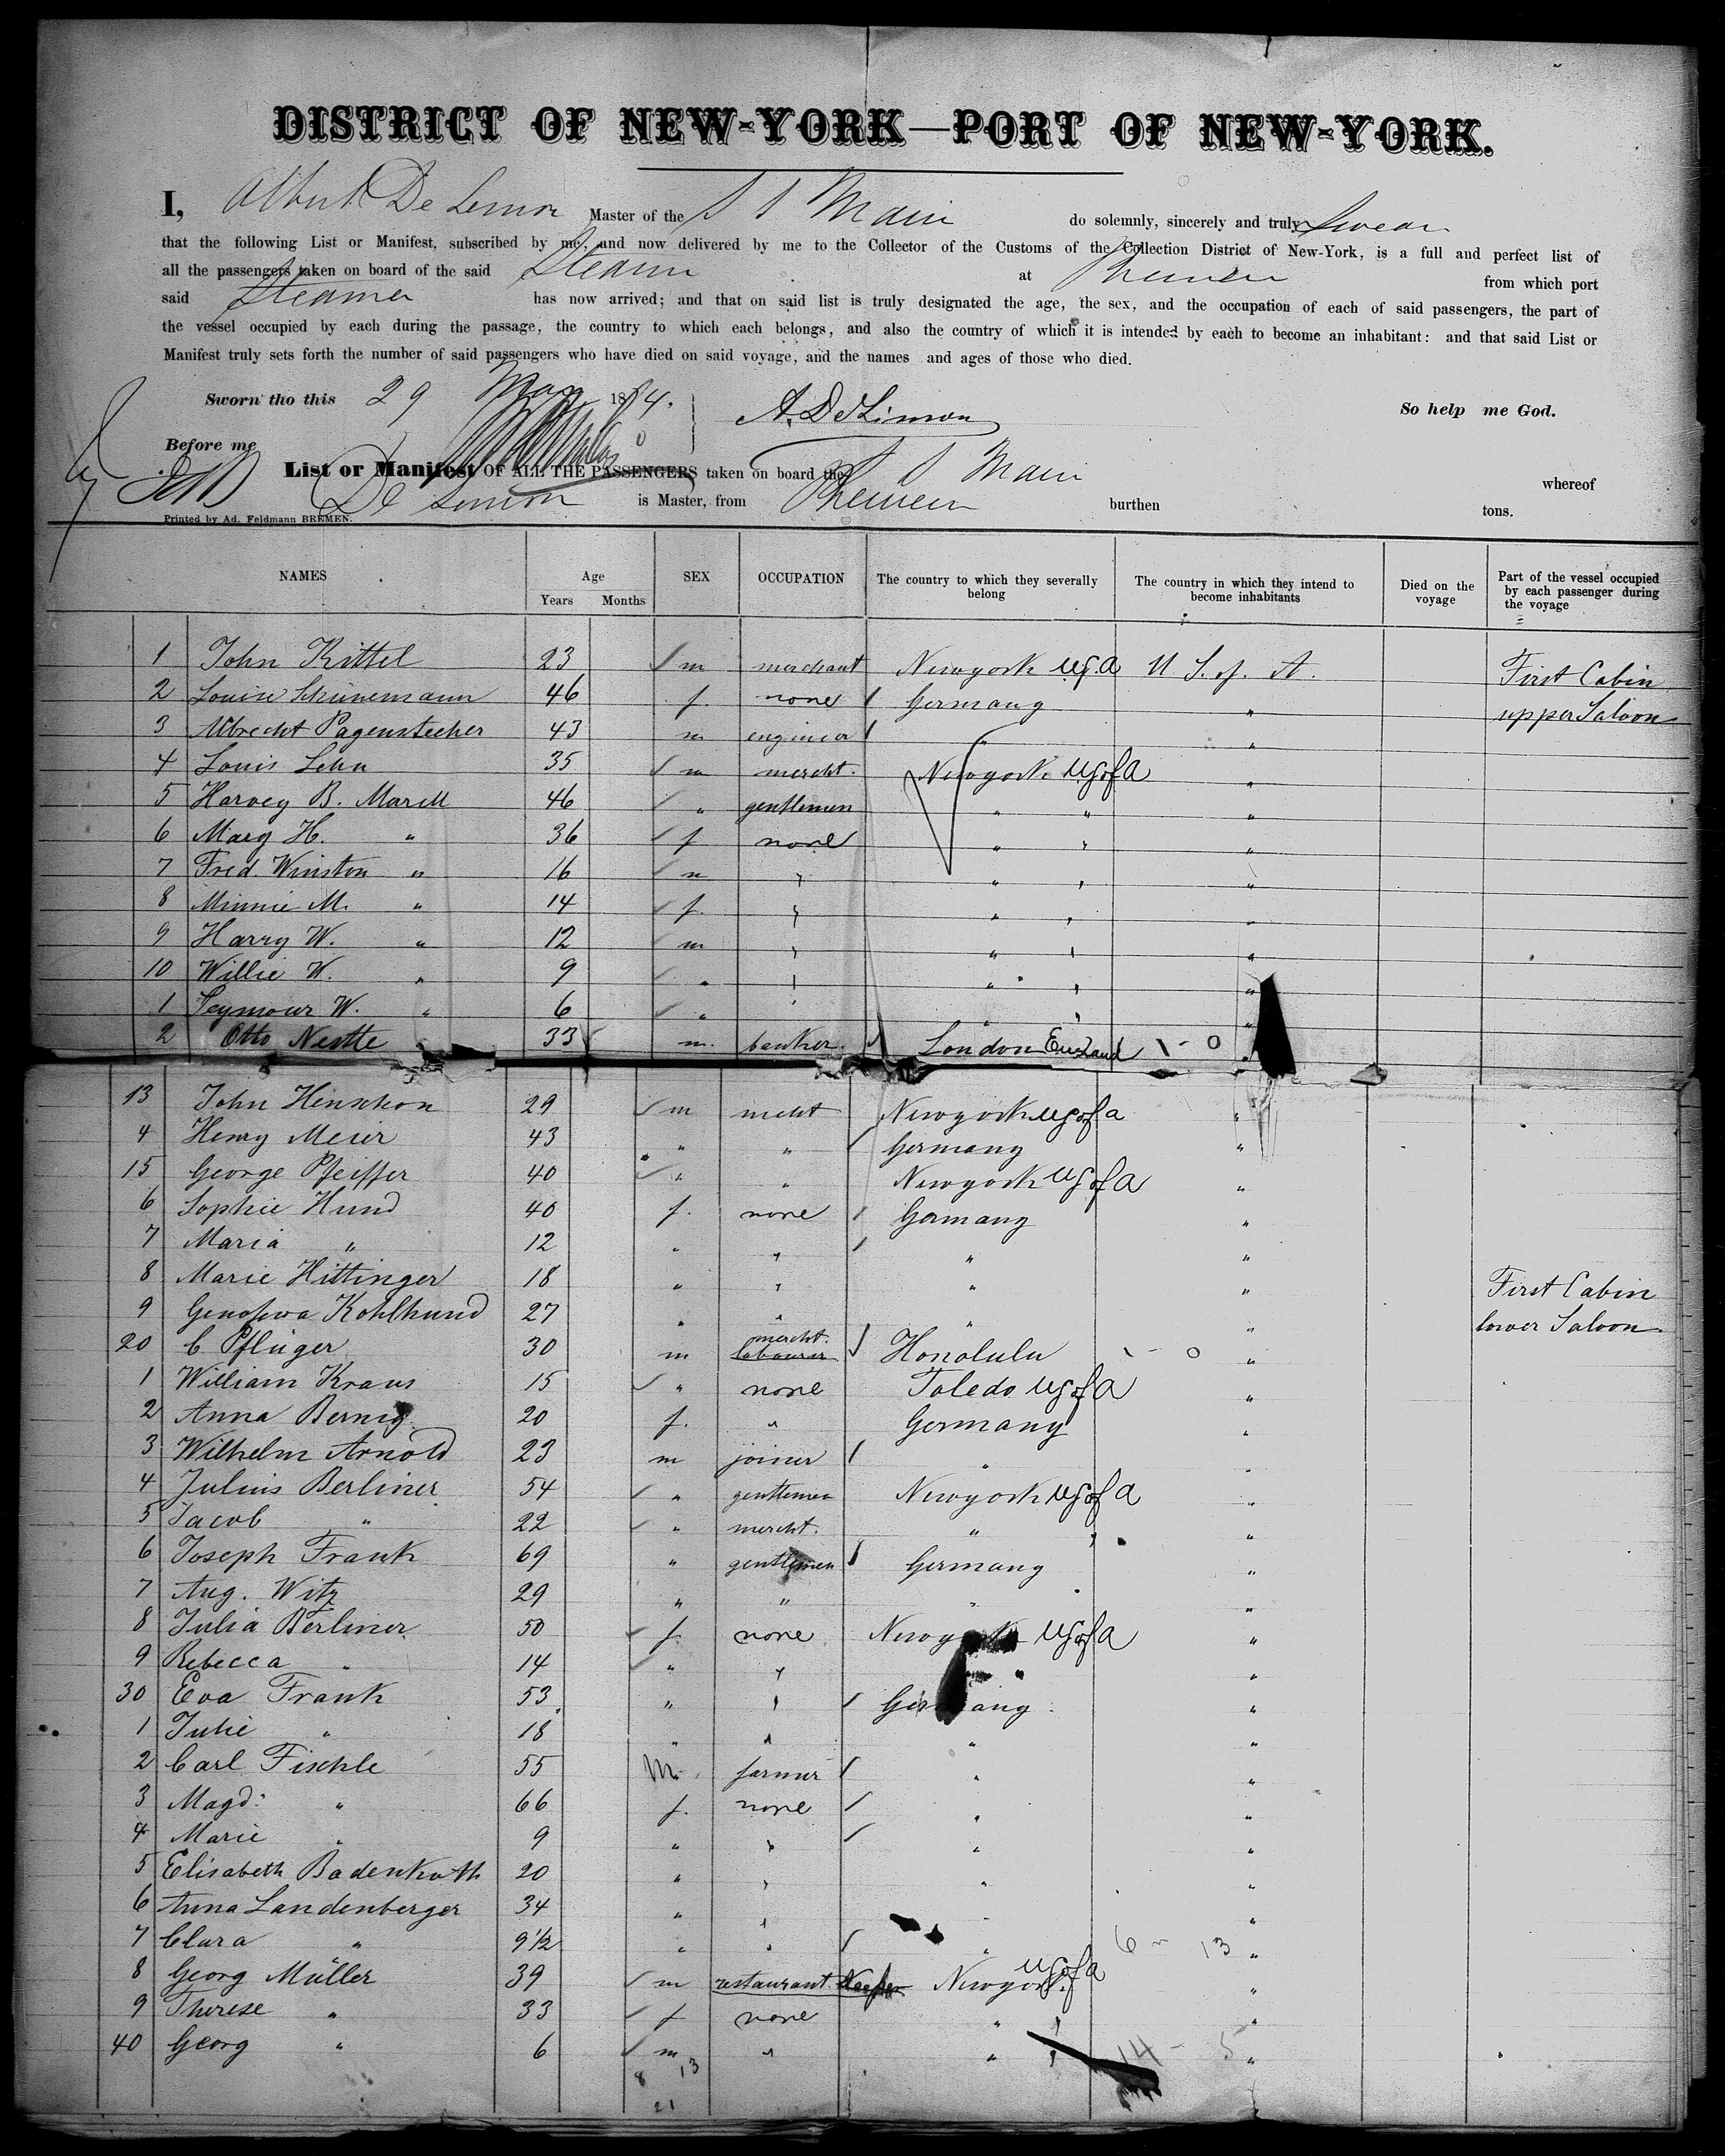 DISTRICT OF NEW-YORK—PORT OF NEW-YORK.
I, Albert De Limon Master of the S S Main do solemnly, sincerely and truly Swear
that the following List or Manifest, subscribed by me, and now delivered by me to the Collector of the Customs of the Collection District of New-York, is a full and perfect list of
all the passengers taken on board of the said Steam at Bremen from which port
said Steamer has now arrived; and that on said list is truly designated the age, the sex, and the occupation of each of said passengers, the part of
the vessel occupied by each during the passage, the country to which each belongs, and also the country of which it is intended by each to become an inhabitant: and that said List or
Manifest truly sets forth the number of said passengers who have died on said voyage, and the names and ages of those who died.
Sworn tho this 29 May 1884. A. De Limon So help me God.
Before me
List or Manifest OF ALL THE PASSENGERS taken on board the S S Main whereof
De Limon is Master, from Bremen burthen tons.
Printed by Ad. Feldmann BREMEN.
NAMES Age Years Months SEX OCCUPATION The country to which they severally belong The country in which they intend to become inhabitants Died on the voyage Part of the vessel occupied by each passenger during the voyage
1 John Kittel 23 m merchant Newyork USA U S. of. A. First Cabin
2 Louise Schünemann 46 f. none Germany " upper Saloon
3 Albrecht Pagenstecher 43 m engineer " "
4 Louis Lehn 35 m mercht. Newyork USofA "
5 Harvey B. 46 " gentlemen " " "
6 Mary H. " 36 f none " " "
7 Fred. Winston " 16 m " " " "
8 Minnie M. " 14 f. " " " "
9 Harry W. " 12 m " " " "
10 Willie W. " 9 " " " " "
1 Seymour W. " 6 " " " " "
2 Otto 33 m. banker. London England \ - 0 "
13 John 29 m mcht Newyork USofA "
4 Henry Meier 43 " " Germany "
15 George Pfeiffer 40 " " Newyork USofA "
6 Sophie Hund 40 f. none Germany "
7 Maria " 12 " " " "
8 Marie Hittinger 18 " " " " First Cabin
9 Genofeva Kohlhund 27 " " " " lower Saloon
20 C Pflüger 30 m mercht. labourer Honolulu \ - 0 "
1 William Kraus 15 " none Toledo USofA "
2 Anna Bernig 20 f. " Germany "
3 Wilhelm Arnold 23 m joiner " "
4 Julius Berliner 54 " gentlemen Newyork USofA "
5 Jacob " 22 " mercht. " " "
6 Joseph Frank 69 " gentlemen Germany "
7 Aug. Witz 29 " " " "
8 Julia Berliner 50 f. none Newyork USofA "
9 Rebecca " 14 " " " "
30 Eva Frank 53 " " Germany "
1 Julie " 18 " " " "
2 Carl Fischle 55 m. farmer " "
3 Magd: " 66 f. none " "
4 Marie " 9 " " " "
5 Elisabeth Badenkoth 20 " " " "
6 Anna Landenberger 34 " " " "
7 Clara " 9½ " " " 6 - 13 "
8 Georg Müller 39 m restaurant Keeper Newyork USofA "
9 Therese " 33 f none " " "
40 Georg " 6 m " " " 14 - 5 "
8 13
21